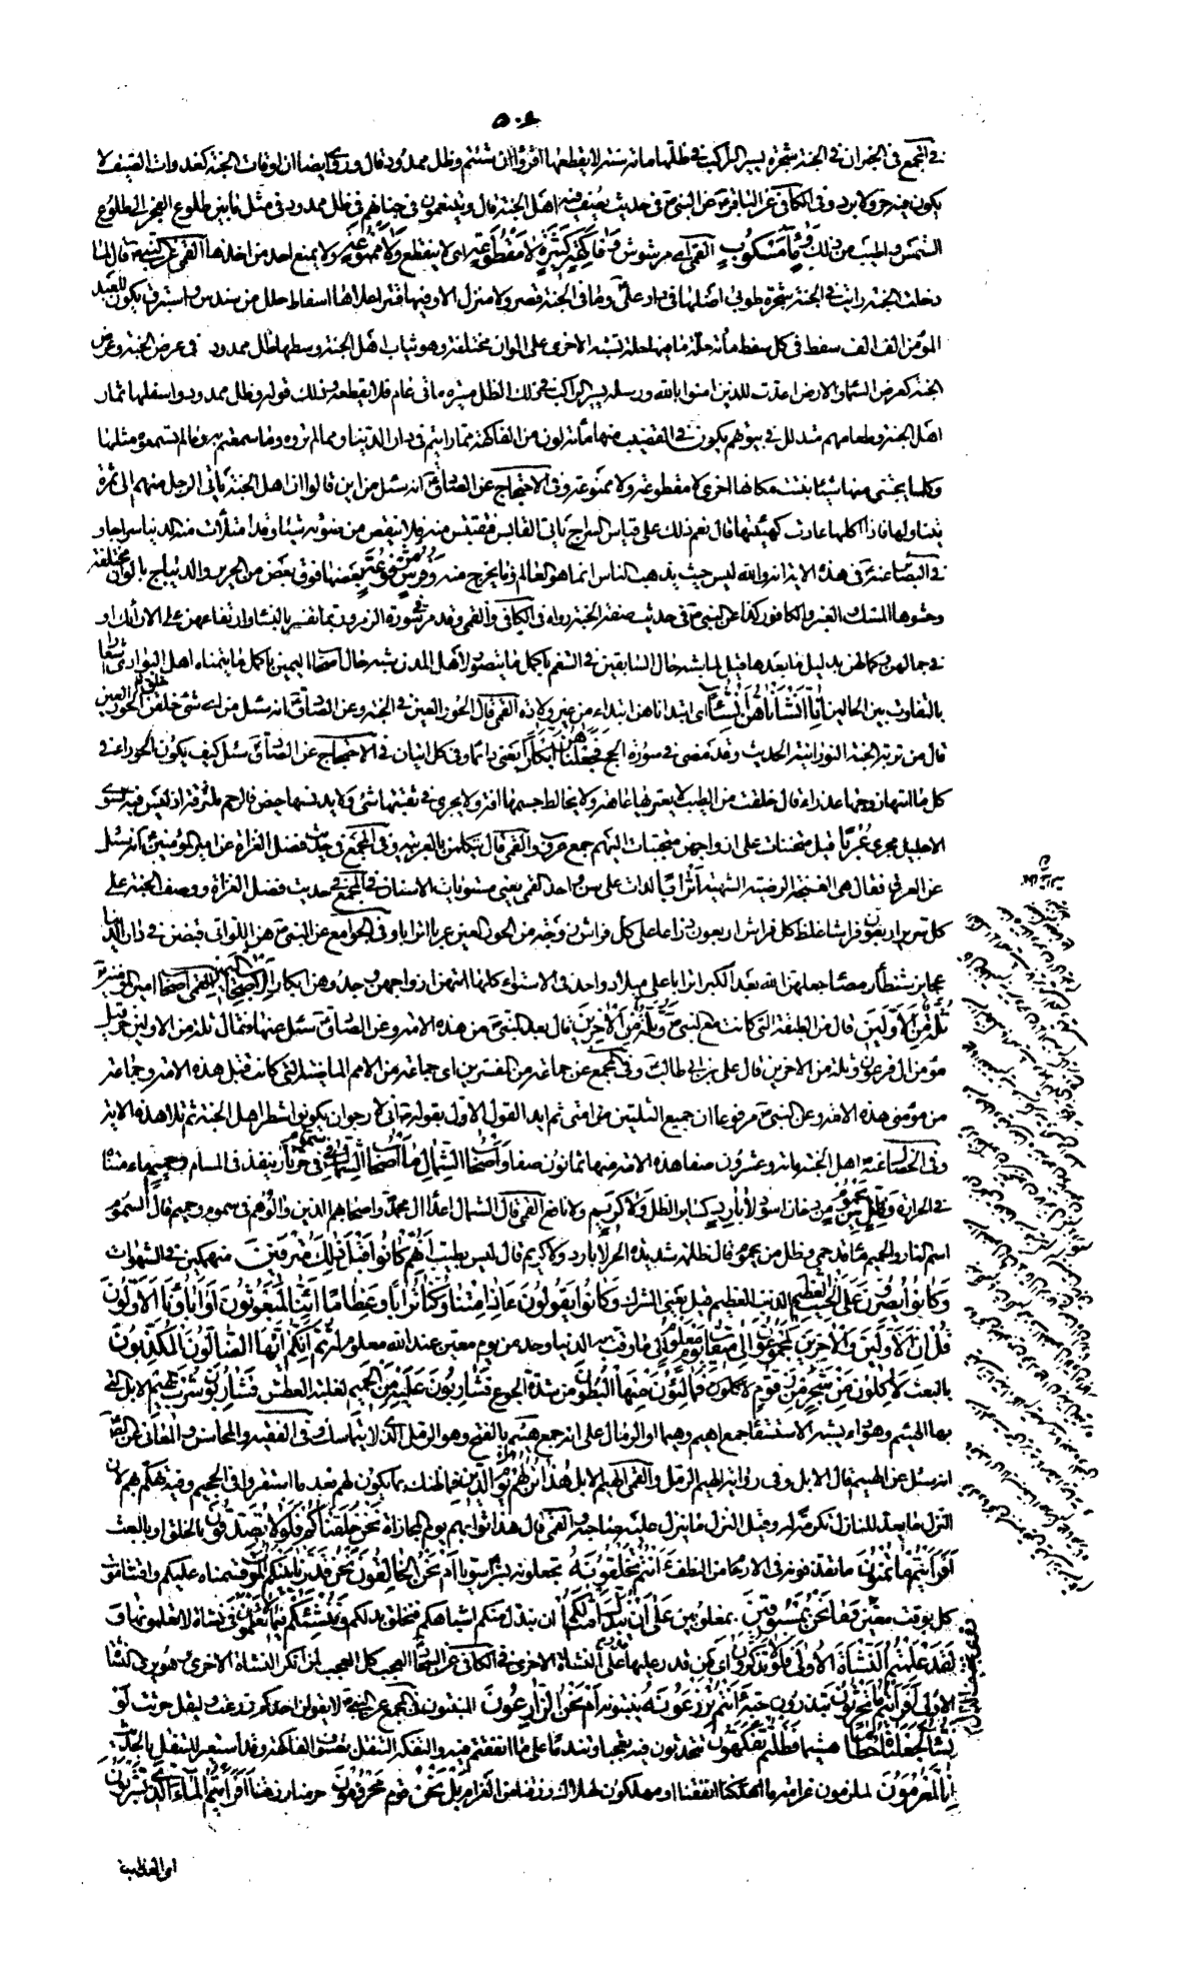 ٥٠٤
في المجمع في الخبر ان في الجنة شجرة يسير الراكب في ظلها مائة سنة لا يقطعها اقرؤا ان شئتم وظل ممدود قال وروي ايضا ان اوقات الجنة كغدوات الصيف لا
يكون فيه حر ولا برد وفي الكافي عن الباقر عن النبي في حديث يصف فيه اهل الجنة قال ويتنعمون في جناتهم في ظل ممدود في مثل ما بين طلوع الفجر الى طلوع
الشمس واطيب من ذلك وماء مسكوب القمي اي مرشوش وفاكهة كثيرة لا مقطوعة اي لا ينقطع ولا ممنوعة ولا يمنع احد من اخذها القمي عن النبي قال لما
دخلت الجنة رايت في الجنة شجرة طوبى اصلها في دار علي وما في الجنة قصر ولا منزل الا وفيها فتر اعلاها اسفاط حلل من سندس واستبرق يكون للعبد
المؤمن الف الف سفط في كل سفط مائة حلة ما فيها حلة تشبه الاخرى على الوان مختلفة وهو ثياب اهل الجنة وسطها ظل ممدود في عرض الجنة وعرض
الجنة كعرض السماء والارض اعدت للذين امنوا بالله ورسله يسير الراكب في ذلك الظل مسيرة مائتي عام فلا يقطعه وذلك قوله وظل ممدود واسفلها ثمار
اهل الجنة وطعامهم متدلل في بيوتهم يكون في القضيب منها مائة لون من الفاكهة مما رايتم في دار الدنيا ومما لم تروه وما سمعتم به وما لم تسمعوه مثلها
وكلما يجتنى منها شيئا نبتت مكانها اخرى لا مقطوعة ولا ممنوعة وفي الاحتجاج عن الصادق انه سئل من اين قالوا ان اهل الجنة ياتي الرجل منهم الى ثمرة
يتناولها فاذا اكلها عادت كهيئتها قال نعم ذلك على قياس السراج ياتي القابس فيقتبس منه فلا ينقص من ضوئه شيئا وقد امتلأت منه الدنيا سراجا و
في البصائر عنه في هذه الاية انه والله ليس حيث يذهب الناس انما هو العالم وما يخرج منه وفرش مرفوعة بعضها فوق بعض من الحرير والديباج بالوان مختلفة
وحشوها المسك العنبر والكافور كذا عن النبي في حديث صفة الجنة رواه في الكافي والقمي وقد مر في سورة الزمر وربما تفسر بالنساء وارتفاعهن على الارائك او
في جمالهن وكمالهن بدليل ما بعدها قيل لما شبه حال السابقين في التنعم باكمل ما يتصور لاهل المدن شبه حال اصحاب اليمين باكمل ما يتمناه اهل البوادي اشعارا
بالتفاوت بين الحالين انا انشأناهن انشاء اي ابتدأناهن ابتداء من غير ولادة القمي قال الحور العين في الجنة وعن الصادق انه سئل من اي شئ خلقن الحور العين
قال من تربة الجنة النورانية الحديث وقد مضى في سورة الحج فجعلناهن ابكارا يعني دائما وفي كل اتيان في الاحتجاج عن الصادق سئل كيف يكون الحوراء في
كل ما اتيها زوجها عذراء قال خلقت من الطيب لا يعتريها عاهة ولا يخالط جسمها افة ولا يجري في ثقبها شئ ولا يدنسها حيض فالرحم ملتزقة اذ ليس فيه لسوى
الاحليل مجرى عربا قيل متحننات على ازواجهن متحببات اليهم جمع عروب والقمي قال يتكلمن بالعربية وفي المجمع في حديث فضل الغزاة عن امير المؤمنين انه سئل
عن العربة فقال هي الغنجة الرضية الشهية اترابا لدات على سن واحد القمي يعني مستويات الاسنان في المجمع في حديث فضل الغزاة ووصف الجنة على
كل سرير اربعون فراشا غلظ كل فراش اربعون ذراعا على كل فراش زوجة من الحور العين عربا اترابا وفي الجوامع عن النبي هن اللواتي قبضن في دار الدنيا
عجايز شمطا رمصا جعلهن الله بعد الكبر اترابا على ميلاد واحد في الاستواء كلما اتيهن ازواجهن وجدوهن ابكارا لاصحاب اليمين القمي اصحاب امير المؤمنين
ثلة من الاولين قال من الطبقة التي كانت مع النبي وثلة من الاخرين قال بعد النبي من هذه الامة وعن الصادق سئل عنها فقال ثلة من الاولين حزقيل
مؤمن ال فرعون وثلة من الاخرين قال علي بن ابي طالب وفي المجمع عن جماعة من المفسرين اي جماعة من الامم الماضية التي كانت قبل هذه الامة وجماعة
من مؤمني هذه الامة وعن النبي مرفوعا ان جميع الثلتين من امتي ثم ايد القول الاول بقوله اني لارجو ان يكونوا شطر اهل الجنة ثم تلا هذه الاية
وفي الخصال عنه اهل الجنة مائة وعشرون صفا هذه الامة منها ثمانون صفا واصحاب الشمال ما اصحاب الشمال في سموم في حر نار ينفذ في المسام وحميم وماء متناه
في الحرارة وظل من يحموم من دخان اسود لا بارد كساير الظل ولا كريم ولا نافع القمي قال الشمال اعداء ال محمد واصحابهم الذين والوهم في سموم وحميم قال السموم
اسم النار والحميم ماء قد حمي وظل من يحموم قال ظلمة شديدة الحر لا بارد ولا كريم قال ليس بطيب انهم كانوا قبل ذلك مترفين منهمكين في الشهوات
وكانوا يصرون على الحنث العظيم الذنب العظيم قيل يعني الشرك وكانوا يقولون ءاذا متنا وكنا ترابا وعظاما ائنا لمبعوثون او اباؤنا الاولون
قل ان الاولين والاخرين لمجموعون الى ميقات يوم معلوم الى ما وقتت به الدنيا وحد من يوم معين عند الله معلوم له ثم انكم ايها الضالون المكذبون
بالبعث لاكلون من شجر من زقوم فمالئون منها البطون من شدة الجوع فشاربون عليه من الحميم لغلبة العطش فشاربون شرب الهيم الابل التي
بها الهيام وهو داء يشبه الاستسقاء جمع اهيم وهيما او الرمال على انه جمع هيام بالفتح وهو الرمل الذي لا يتماسك وفي الفقيه والمحاسن والمعاني عن الصادق
انه سئل عن الهيم قال الابل وفي رواية الهيم الرمل والقمي الهيم الابل هذا نزلهم يوم الدين فما ظنك بما يكون لهم بعد ما استقروا في الجحيم وفيه تهكم بهم لان
النزل ما يعد للنازل تكرمة له وقيل النزل ما ينزل عليه صاحبه والقمي قال هذا ثوابهم يوم المجازاة نحن خلقناكم فلولا تصدقون بالخلق او بالبعث
افرايتم ما تمنون ما تقذفونه في الارحام من النطف ءانتم تخلقونه تجعلونه بشرا سويا ام نحن الخالقون نحن قدرنا بينكم الموت قسمناه عليكم واقتنا موت
كل بوقت معين وما نحن بمسبوقين بمغلوبين على ان نبدل امثالكم ان نبدل منكم اشباهكم فنخلق بدلكم وننشئكم فيما لا تعلمون في نشأة لا تعلمونها و
لقد علمتم النشأة الاولى فلولا تذكرون ان من قدر عليها قدر على النشأة الاخرى في الكافي عن السجاد العجب كل العجب لمن انكر النشأة الاخرى وهو يرى النشأة
الاولى افرايتم ما تحرثون تبذرون حبه ءانتم تزرعونه تنبتونه ام نحن الزارعون المنبتون في المجمع عن النبي لا يقولن احدكم زرعت وليقل حرثت لو
نشاء لجعلناه حطاما هشيما فظلتم تفكهون تتحدثون فيه تعجبا وتندما على ما انفقتم فيه والتفكه التنقل بصنوف الفاكهة وقد استعير للتنقل بالحديث
انا لمغرمون لملزمون غرامة ما انفقنا او مهلكون لهلاك رزقنا من الغرام بل نحن قوم محرومون حرمنا رزقنا افرايتم الماء الذي تشربون
اي العذب